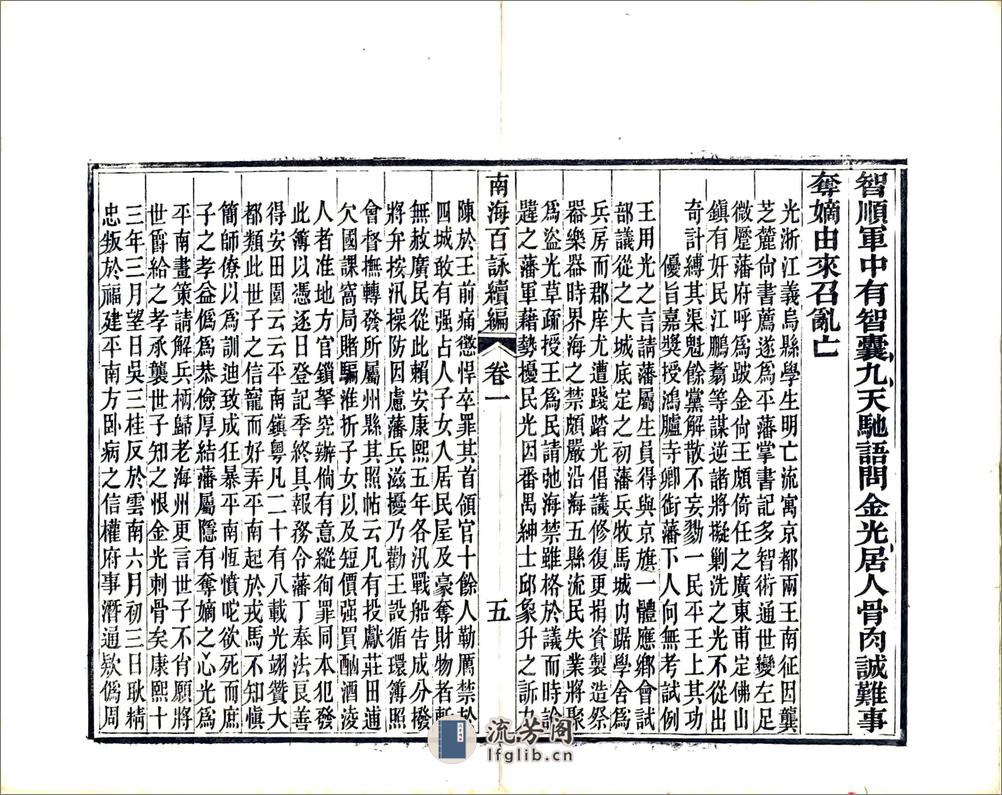 智順軍中有智囊九天馳語問金光居人骨肉誠難事
奪嫡由來召亂亡
光浙江義烏縣學生明亡流寓京都兩王南征因龔
芝麓尙書薦遂爲平藩掌書記多智術通世變左足
微躄藩府呼爲跛金尙王頗倚任之廣東甫定佛山
鎭有奸民江鵬翥等謀逆諸將擬剿洗之光不從出
奇計縛其渠魁餘黨解散不妄戮一民平王上其功
優旨嘉奬授鴻臚寺卿銜藩下人向無考試例
王用光之言請藩屬生員得與京旗一體應鄉會試
部議從之大城底定之初藩兵牧馬城內踞學舍爲
兵房而郡庠尤遭踐踏光倡議修復更捐資製造祭
器樂器時界海之禁頗嚴沿海五縣流民失業將聚
爲盜光草疏授王爲民請弛海禁雖格於議而時論
韙之藩軍藉勢擾民光因番禺紳士邱象升之訴力
南海百詠續編 卷一 五
陳於王前痛懲悍卒罪其首領官十餘人勒厲禁於
四城敢有强占人子女入居民屋及豪奪財物者斬
無赦廣民從此賴安康熙五年各汛戰船告成分撥
將弁按汛操防因慮藩兵滋擾乃勸王設循環簿照
會督撫轉發所屬州縣其照帖云凡有投獻莊田逋
欠國課窩局賭騙准折子女以及短價强買酗酒凌
人者准地方官鎖拏究辦倘有意縱徇罪同本犯發
此簿以憑逐日登記季終具報務令藩丁奉法良善
得安田園云云平南鎭粤凡二十有八載光翊贊大
都類此世子之信寵而好弄平南起於戎馬不知愼
簡師僚以爲訓迪致成狂暴平南恆憤咤欲死而庶
子之孝益僞爲恭儉厚結藩屬隱有奪嫡之心光爲
平南畫策請解兵柄歸老海州更言世子不肖願將
世爵給之孝承襲世子知之恨金光刺骨矣康熙十
三年三月望日吳三桂反於雲南六月初三日耿精
忠叛於福建平南方臥病之信權府事潛通欵僞周
流芳阁
lfglib.cn